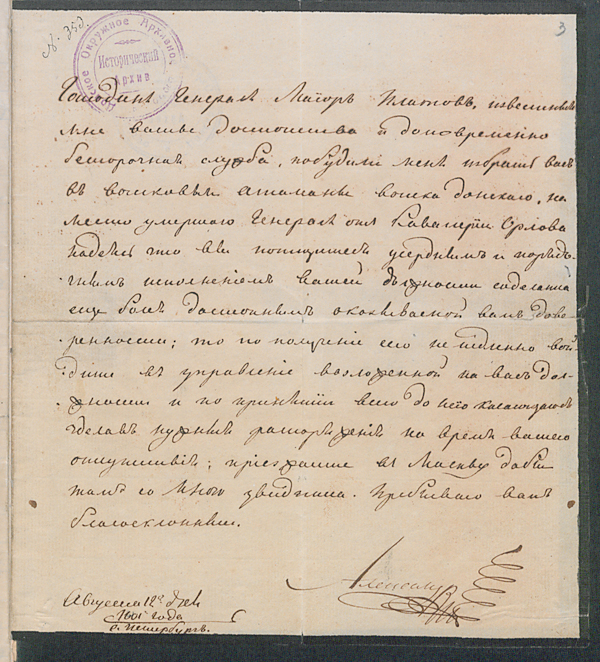 3
Окружное Архивное
Исторический
Архив
Господинъ Генералъ Маiоръ Платовъ, известныя
мне ваше достоинства и долговременно
беспорочная служба, побудили меня избрать васъ
въ войсковые атаманы войска донскаго, на
место умершаго Генерала отъ Кавалерiи Орлова
надеясь что вы потщитесь усерднымъ и порядо-
чнымъ исполненiемъ вашей должности соделатца
еще более достойнымъ оказываемой вамъ дове-
ренности; то по получении сего немедленно вой-
дите въ управленiе возложенной на васъ дол-
жности и по принятiи всего до него касающагося
зделавъ нужныя распоряженiя на время вашего
отсутствiя; прiезжайте въ Москву дабы
тамъ со мною увидится. Пребываю вамъ
благосклонный.
Александръ
Августа 12го дня
1801 года
С. Петербургъ.